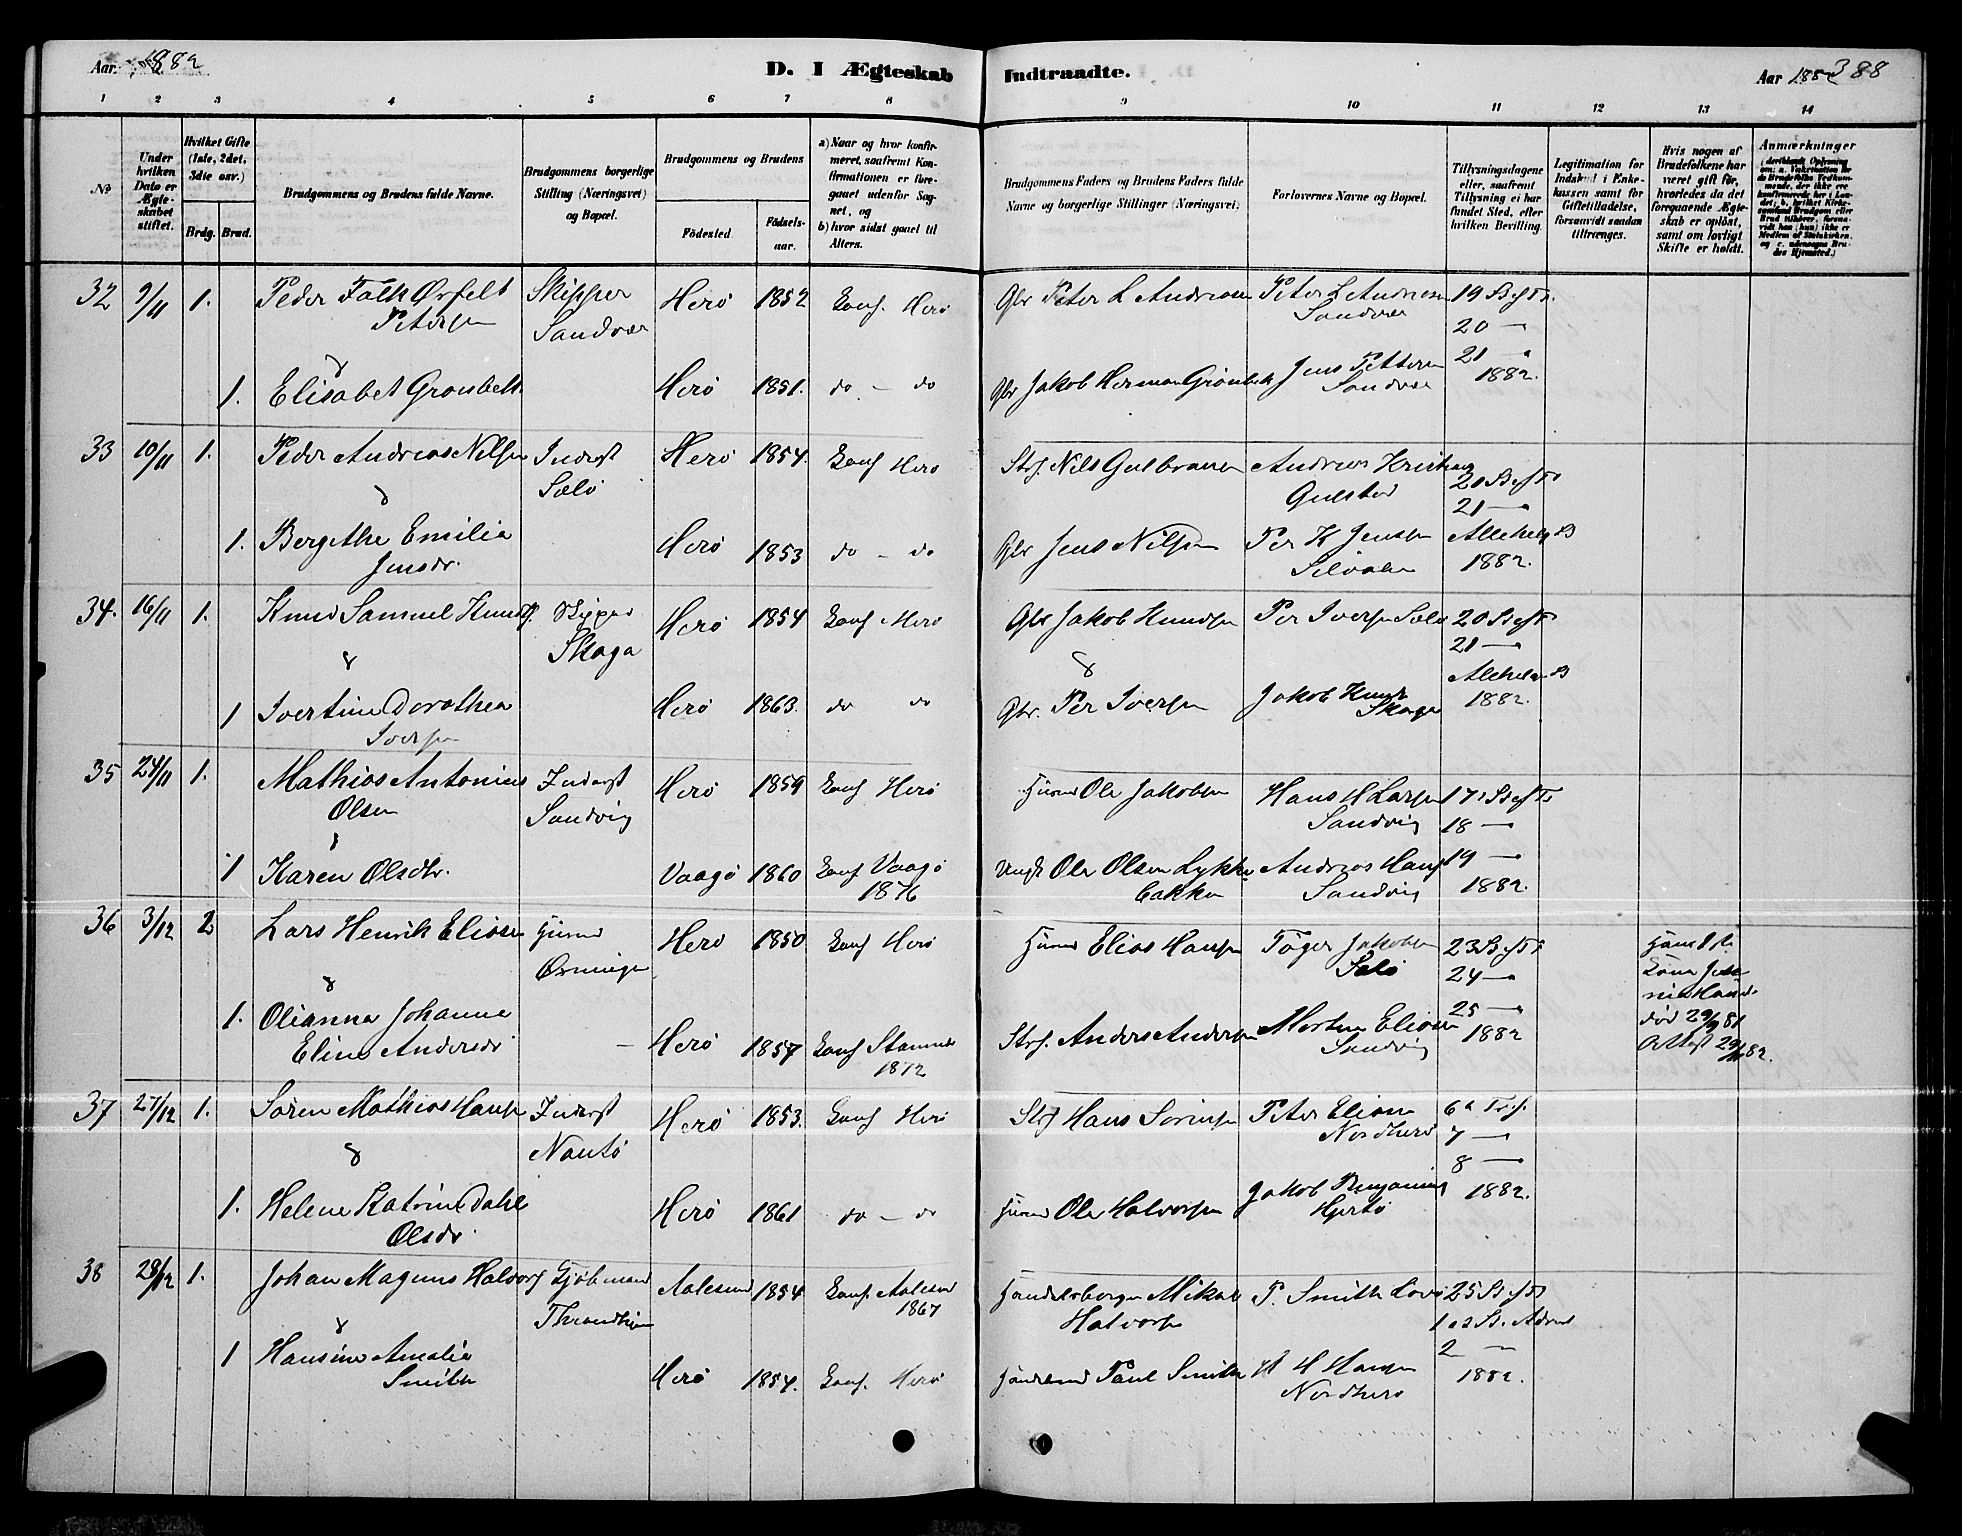 Aar. 1882
D. I Ægteskab Indtraadte.
Aar 1882 388
1 2 3 4 5 6 7 8 9 10 11 12 13 14
No
Under hvilken Dato er Ægteskabet stiftet.
Hvilket Gifte (1ste, 2det, 3die osv.)
Brdg. Brud.
Brudgommens og Brudens fulde Navne.
Brudgommens borgerlige Stilling (Næringsvei) og Bopæl.
Brudgommens og Brudens
Födested
Födselsaar.
a) Naar og hvor konfirmeret, saafremt Konfirmationen er foregaaet udenfor Sognet, og
b) hvor sidst gaaet til Alters.
Brudgommens Faders og Brudens Faders fulde Navne og borgerlige Stillinger (Næringsvei).
Forlovernes Navne og Bopæl.
Tillysningsdagene eller, saafremt Tillysning ei har fundet Sted, efter hvilken Bevilling.
Legitimation for Indskud i Enkekassen samt for Giftetilladelse, forsaavidt saadan tiltrænges.
Hvis nogen af Brudefolkene har været gift för, hvorledes da det foregaaende Ægteskab er oplöst, samt om lovligt Skifte er holdt.
Anmærkninger
32 9/11 1. Peder Falk Örfelt Petersen Skipper Sandvær Herö 1852 Konf. Herö Gbr Peter L Andresen Peter L Andresen Sandvær 19 S. e f Tr.
20 —
21 —
&
1. Elisabet Grönbek Herö 1851. do — do Gbr Jakob Herman Grönbek Jens Pettersen Sandvær 1882.
33 10/11 1. Peder Andreas Nilsen Inderst Sælö Herö 1854. Konf Herö Strf. Nils Gulbransen Andreas Kristian Gulstad 20 S. e f Tr
21 —
&
1. Bergithe Emilie Jensdr. Herö 1853 do — do Gbr Jens Nilsen Per K Jensen Allehelg. 1882.
34. 16/11 1. Knud Samuel Knuds. Skipper Skaga Herö 1854 Konf Herö Gbr Jakob Knudsen Per Iversen Sælö 20 S e f Tr
21 —
&
1 Ivertine Dorothea Iversen Herö 1863. do do Gbr. Per Iversen Jakob Knuds Skaga Allehelg. 1882.
35 24/11 1. Mathias Antonius Olsen Inderst Sandvig Herö 1859 Konf Herö Husmd Ole Jakobsen Hans H Larsen Sandvig 17 S e f Tr
18 —
&
1 Karen Olsdtr. Vaagö 1860 Konf Vaagö 1876 Ole Olsen Lykkebakken Andreas Hans Sandvig 19 —
1882.
36 3/12 2 Lars Henrik Eliasen Husmd Herö 1850 Konf Herö Husmd Elias Hansen Töger Jakobsen Sælö 23 S. e f Tr
24 —
död 29/9 81
&
1. Olianna Johanna Eline Andersdr Herö 1857 Konf Stamnes 1872 Strf. Anders Andersen Morten Eliasen Sandvig 25 —
1882
37 27/12 1. Sören Mathias Hansen Inderst Herö 1853. Konf Herö Strf Hans Sörensen Peter Eliasen Nordherö 6 S Tr. f.
7 —
8 —
&
1. Helene Katrine Dahl Olsdr. Herö 1861 do — do Husmd Ole Halvorsen Jakob Benjamins Hjertö 1882.
38 28/12 1. Johan Magnus Halvors Kjöbmand Throndhjem Aalesund 1854 Konf. Aalesund 1867 Handelsborger Mikal Halvorsen P. Smith 25 S e f Tr
1 S. Advent
2 —
&
1 Hansine Amalia Smith Herö 1854. Konf. Herö Handelsmd Paul Smith H Hansen Nordherö 1882.